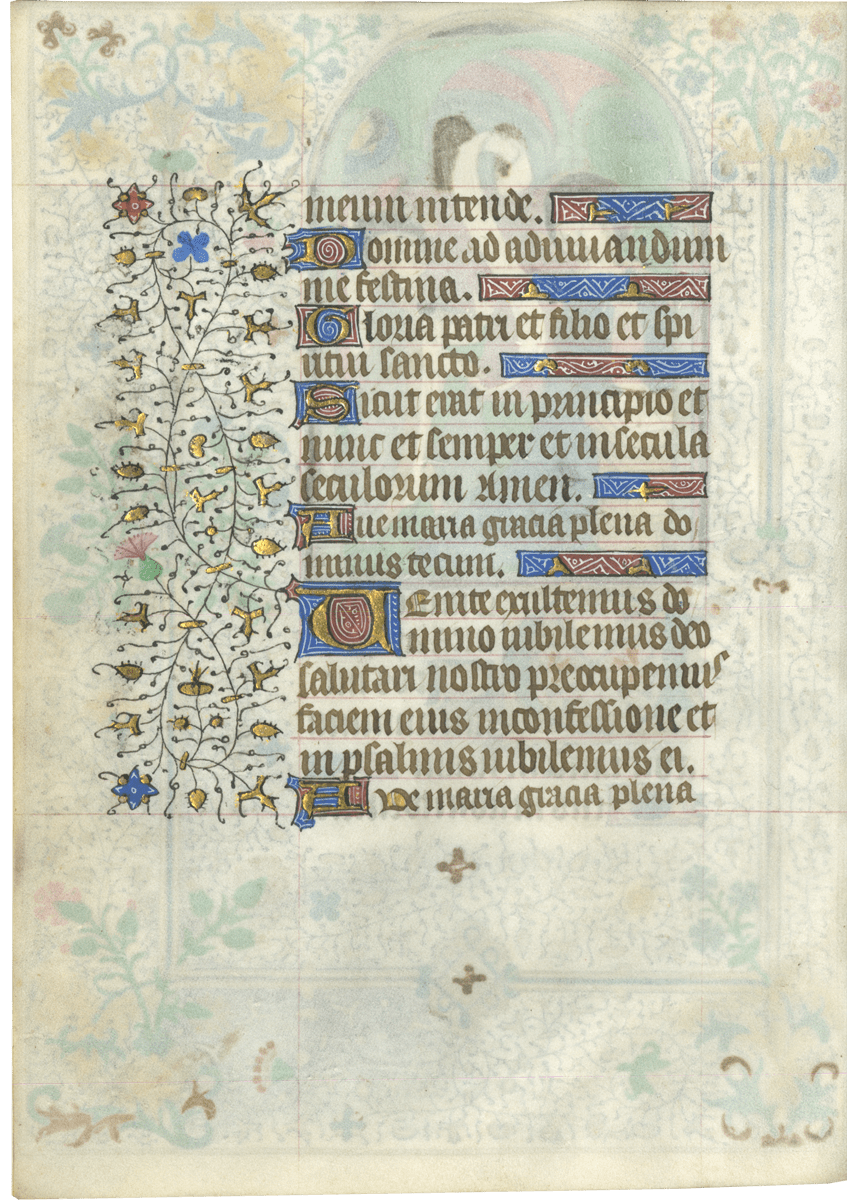 meum intende.
Domine ad adiuuandum
me festina.
Gloria patri et filio et spi
ritui sancto.
Sicut erat in principio et
nunc et semper et in secula
seculorum Amen.
Aue maria gracia plena do
minus tecum.
Uenite exultemus do
mino iubilemus deo
salutari nostro preocupemus
faciem eius in confessione et
in psalmis iubilemus ei.
Aue maria gracia plena